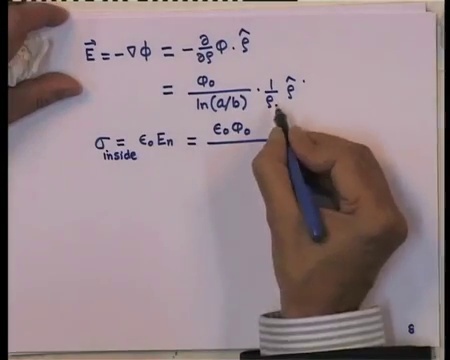 E⃗ = -∇φ = -∂/∂ρ φ · ρ̂
= φ₀/ln(a/b) · 1/ρ ρ̂
σ inside = ε₀ Eₙ = ε₀ φ₀
8